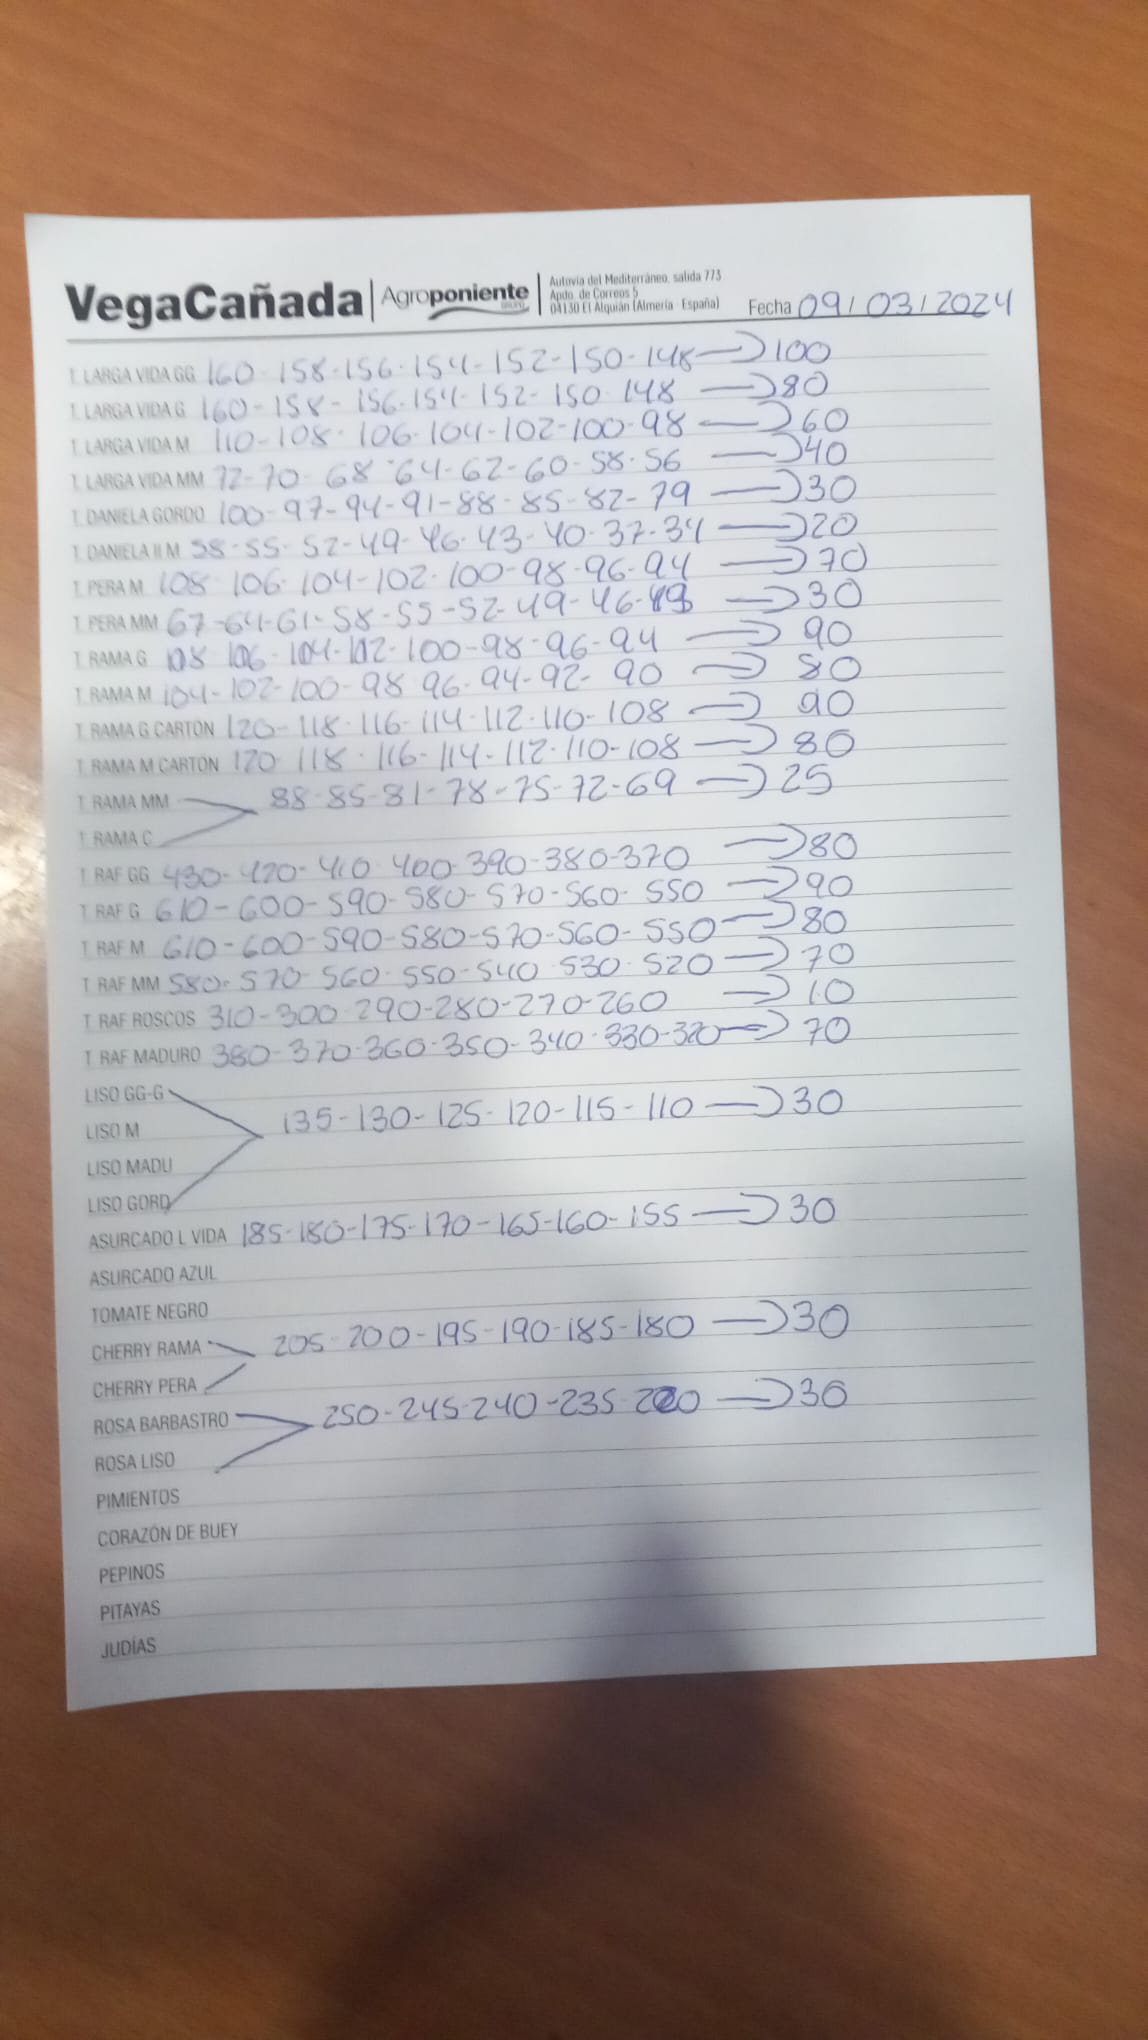 VegaCañada | Agroponiente GRUPO | Autovía del Mediterráneo, salida 773
Apdo. de Correos 5
04130 El Alquián (Almería - España)
Fecha 09/03/2024
T. LARGA VIDA GG 160-158-156-154-152-150-148 → 100
T. LARGA VIDA G 160-158-156-154-152-150-148 → 80
T. LARGA VIDA M 110-108-106-104-102-100-98 → 60
T. LARGA VIDA MM 72-70-68-64-62-60-58-56 → 40
T. DANIELA GORDO 100-97-94-91-88-85-82-79 → 30
T. DANIELA II M 58-55-52-49-46-43-40-37-34 → 20
T. PERA M 108-106-104-102-100-98-96-94 → 70
T. PERA MM 67-64-61-58-55-52-49-46-43 → 30
T. RAMA G 108-106-104-102-100-98-96-94 → 90
T. RAMA M 104-102-100-98-96-94-92-90 → 80
T. RAMA G CARTÓN 120-118-116-114-112-110-108 → 90
T. RAMA M CARTÓN 120-118-116-114-112-110-108 → 80
T. RAMA MM 88-85-81-78-75-72-69 → 25
T. RAMA C
T. RAF GG 430-420-410-400-390-380-370 → 80
T. RAF G 610-600-590-580-570-560-550 → 90
T. RAF M 610-600-590-580-570-560-550 → 80
T. RAF MM 580-570-560-550-540-530-520 → 70
T. RAF ROSCOS 310-300-290-280-270-260 → 10
T. RAF MADURO 380-370-360-350-340-330-320 → 70
LISO GG-G
LISO M 135-130-125-120-115-110 → 30
LISO MADU
LISO GORD
ASURCADO L VIDA 185-180-175-170-165-160-155 → 30
ASURCADO AZUL
TOMATE NEGRO
CHERRY RAMA 205-200-195-190-185-180 → 30
CHERRY PERA
ROSA BARBASTRO 250-245-240-235-220 → 30
ROSA LISO
PIMIENTOS
CORAZÓN DE BUEY
PEPINOS
PITAYAS
JUDÍAS